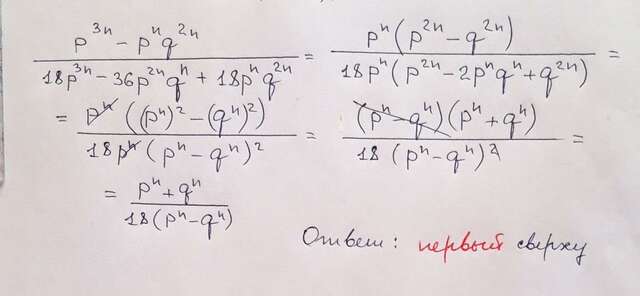 p³ⁿ - pⁿq²ⁿ / 18p³ⁿ - 36p²ⁿqⁿ + 18pⁿq²ⁿ = pⁿ(p²ⁿ - q²ⁿ) / 18pⁿ(p²ⁿ - 2pⁿqⁿ + q²ⁿ) =
= pⁿ((pⁿ)² - (qⁿ)²) / 18pⁿ(pⁿ - qⁿ)² = (pⁿ - qⁿ)(pⁿ + qⁿ) / 18(pⁿ - qⁿ)² =
= pⁿ + qⁿ / 18(pⁿ - qⁿ)
Ответ: первый сверху